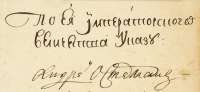 По ея імператорского
величества указу.
Андрей Остерманъ